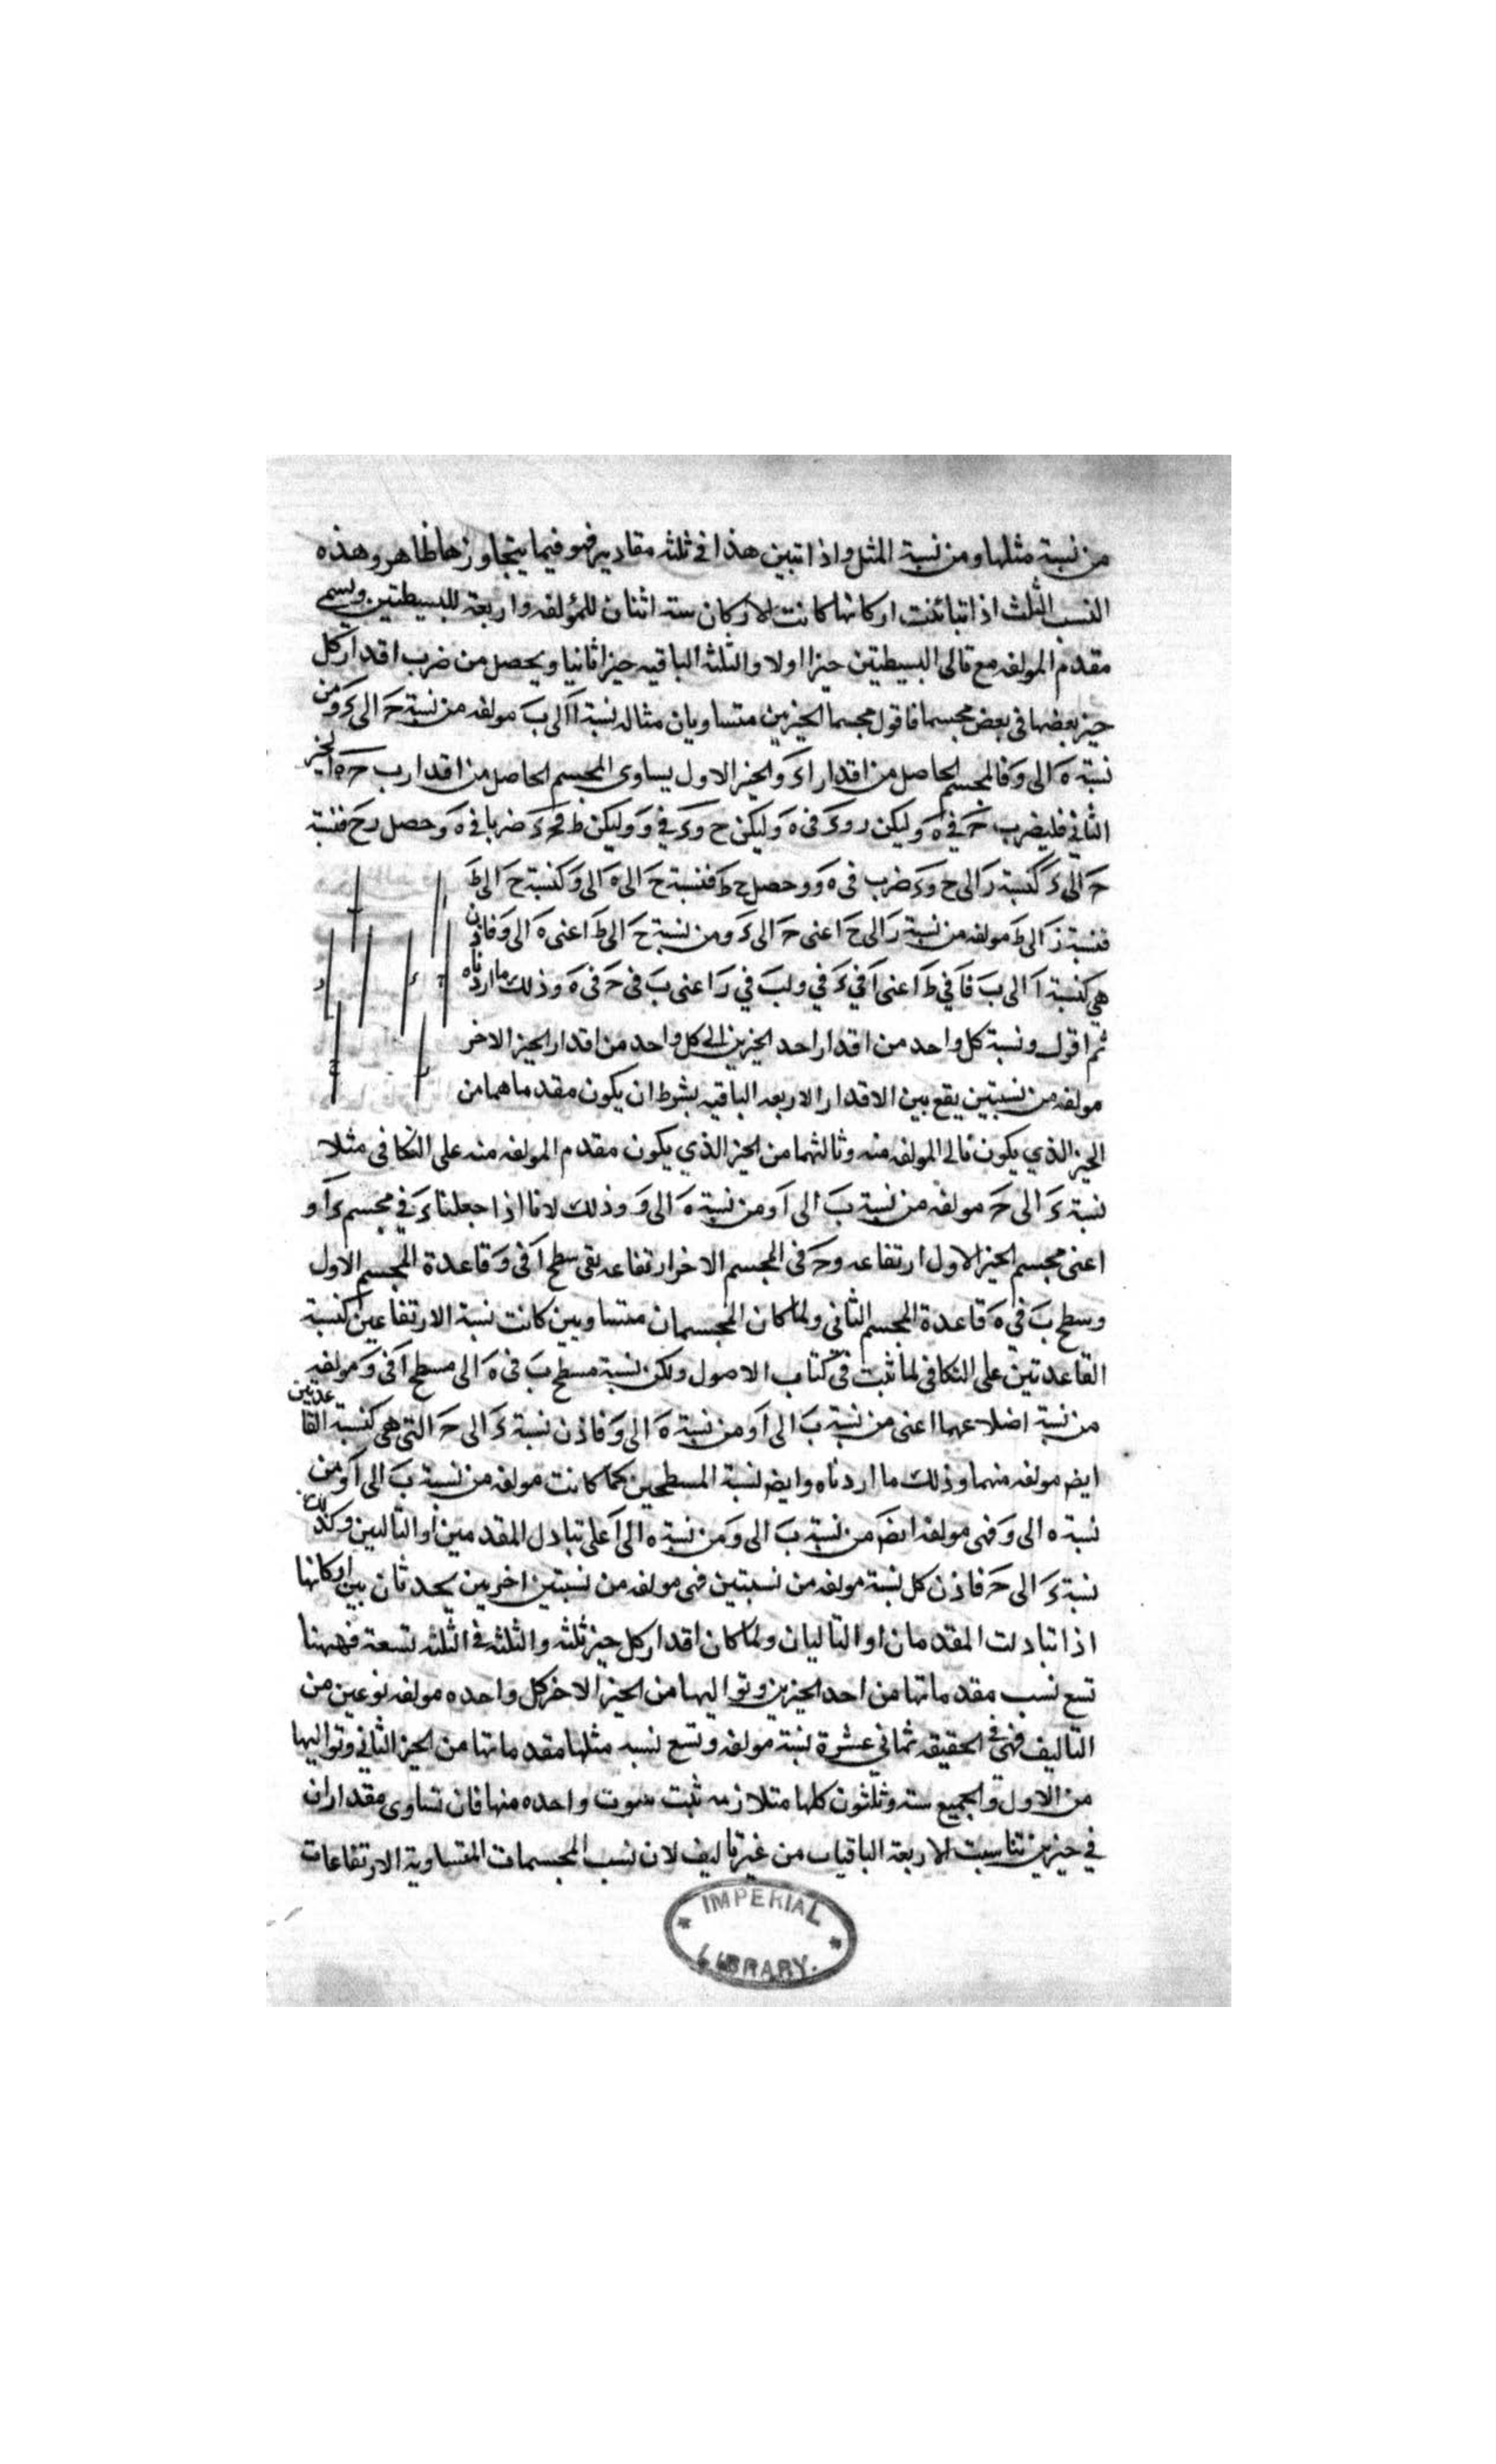 من نسبة مثلها ومن نسبة المثل واذا تبين هذا فى ثلثه مقادير فهو فيما يتجاوزها ظاهر وهذه
النسب الثلث اذا تباينت اركانها كانت الاركان سته اثنان للمؤلفه واربعة للبسيطتين ويسمى
مقدم المولفه مع تالى البسيطتين حيزا اولا والثلثه الباقيه حيزا ثانيا ويحصل من ضرب اقدار كل
حيز بعضها فى بعض مجسما فاقول مجسما الحيزين متساويان مثاله نسبة ا الى ب مولفه من نسبة حـ الى ء ومن
نسبة ه الى و فالمجسم الحاصل من اقدار ا ء و الحيز الاول يساوى المجسم الحاصل من اقدار ب حـ ه الحيز
الثانى فليضرب حـ فى ه وليكن ر و ء فى ه وليكن ح و ء فى و وليكن ط ضربا فى ه وحصل ر ح فنسبة
حـ الى ء كنسبة ر الى ح و ء ضرب فى ه و وحصل ح ط فنسبة ح الى ه الى و كنسبة ح الى ط
فنسبة ز الى ط مولفه من نسبة ر الى ح اعنى حـ الى ء ومن نسبة ح الى ط اعنى ه الى و فاذن
هى كنسبة ا الى ب فا فى ط اعنى ا فى ء فى و لب فى ر اعنى ب فى حـ فى ه وذلك ما اردناه
ثم اقول ونسبة كل واحد من اقدار احد الحيزين الى كل واحد من اقدار الحيز الاخر
مولفه من نسبتين يقع بين الاقدار الاربعه الباقيه بشرط ان يكون مقدماهما من
الحيز الذي يكون تالى المولفه منه وتاليهما من الحيز الذي يكون مقدم المولفه منه على التكافى مثلا
نسبة ء الى حـ مولفه من نسبة ب الى ا ومن نسبة ه الى و وذلك لانا اذا جعلنا ء فى مجسم ء ا و
اعنى مجسم الحيز الاول ارتفاعه وحـ فى المجسم الاخر ارتفاعه بقى سطح ا فى و قاعدة المجسم الاول
وسطح ب فى ه قاعدة المجسم الثانى ولما كان المجسمان متساويين كانت نسبة الارتفاعين كنسبة
القاعدتين على التكافى لما ثبت فى كتاب الاصول ولكن نسبة مسطح ب فى ه الى مسطح ا فى و مولفه
من نسبة اضلاعهما اعنى من نسبة ب الى ا ومن نسبة ه الى و فاذن نسبة ء الى حـ التى هى كنسبة القاعدتين
ايض مولفه منهما وذلك ما اردناه وايض نسبة المسطحين كما كانت مولفه من نسبة ب الى ا ومن
نسبة ه الى و فهى مولفه ايض من نسبة ب الى و ومن نسبة ه الى ا على تبادل المقدمين او التاليين وكذلك
نسبة ء الى حـ فاذن كل نسبة مولفه من نسبتين فهى مولفه من نسبتين اخريين يحدثان بين اركانها
اذا تبادلت المقدمان او التاليان ولما كان اقدار كل حيز ثلثه والثلثه فى الثلثه تسعة فههنا
تسع نسب مقدماتها من احد الحيزين وتواليها من الحيز الاخر كل واحده مولفه نوعين من
التاليف فهى فى الحقيقه ثمانى عشرة نسبة مولفه وتسع نسبه مثلها مقدماتها من الحيز الثانى وتواليها
من الاول والجميع سته وثلثون كلها متلازمه ثبت بثبوت واحده منها فان تساوى مقداران
فى حيزين تناسبت الاربعة الباقيات من غير تاليف لان نسب المجسمات المتساوية الارتفاعات
IMPERIAL
LIBRARY.